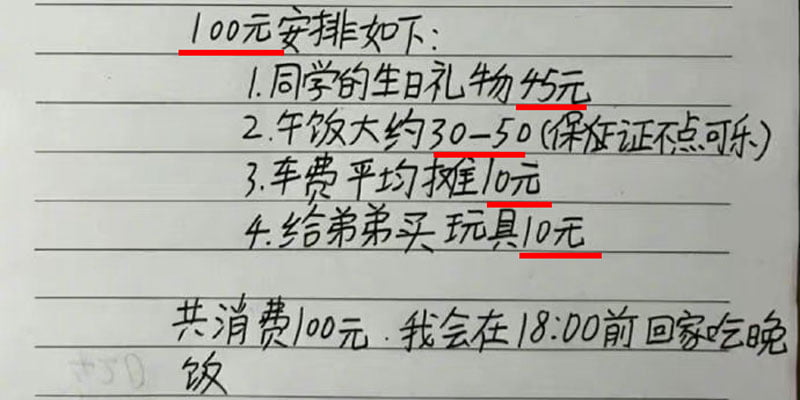 100元安排如下：
1.同学的生日礼物45元
2.午饭大约30—50(保证证不点可乐)
3.车费平均摊10元
4.给弟弟买玩具10元
共消费100元.我会在18:00前回家吃晚
饭